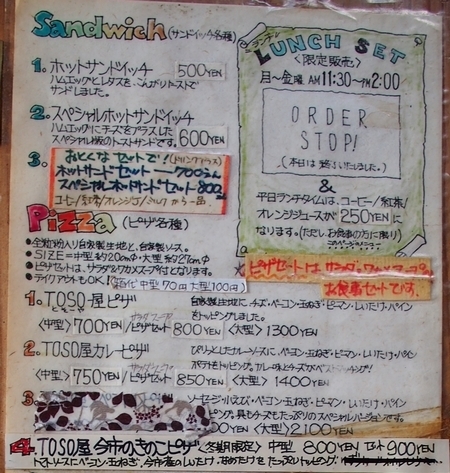 Sandwich (サンドイッチ各種)
1. ホットサンドイッチ 500YEN
ハムエッグとレタスをこんがりトーストで
サンドしました。
2. スペシャルホットサンドイッチ
ハムエッグにチーズをプラスした
スペシャル版のトーストサンドです。 600YEN
3. おとくなセットで!(ドリンクプラス)
ホットサンドセット 700
スペシャルホットサンドセット 800
コーヒー/紅茶/オレンジJ/ミルクから一品
LUNCH SET
〈限定販売〉
月〜金曜 AM11:30〜PM2:00
ORDER
STOP!
(本日は終了いたしました。)
&
平日ランチタイムは、コーヒー/紅茶/
オレンジジュースが250YENに
なります。(ただし、お食事の方に限り)
Pizza (ピザ各種)
全粒粉入り自家製生地と、自家製ソース。
SIZE=中型 約20cmφ・大型 約27cmφ
ピザセットは、サラダ&ワカメスープ付となります。
テイクアウトもOK! 箱代 中型70円 大型100円
ピザセットは、サラダ、ワカメスープの
お食事セットです。
1. TOSO屋ピザ
自家製生地に、チーズ・ベーコン・玉ねぎ・ピーマン・しいたけ・パイン
をトッピングしました。
〈中型〉700YEN/ピザセット 800YEN 〈大型〉1300YEN
2. TOSO屋カレーピザ
ぴりっとしたカレーソースに、ベーコン・玉ねぎ・ピーマン・しいたけ・パイン
ポテトをトッピング。カレー味とチーズがベストマッチング!
〈中型〉750YEN/ピザセット 850YEN 〈大型〉1400YEN
3.
ソーセージ・ベーコン・玉ねぎ・ピーマン・しいたけ・パイン
ピング。具もチーズもたっぷりのスペシャルバージョンです。
〈大型〉2100YEN
4. TOSO屋 今市のきのこピザ〈冬期限定〉 中型 800YEN セット 900YEN
トマトソースにベーコン、玉ねぎ、今市産のしいたけ、